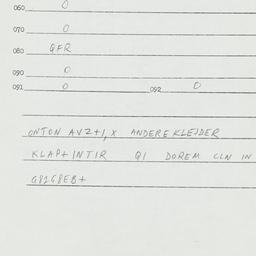 060 0
070 0
080 QFR
090 0
091 0 092 0
ONTON AVZ+1,X ANDERE KLEIDER
KLAP+INTIR QI DOREM CLN IN
G81G8EB+